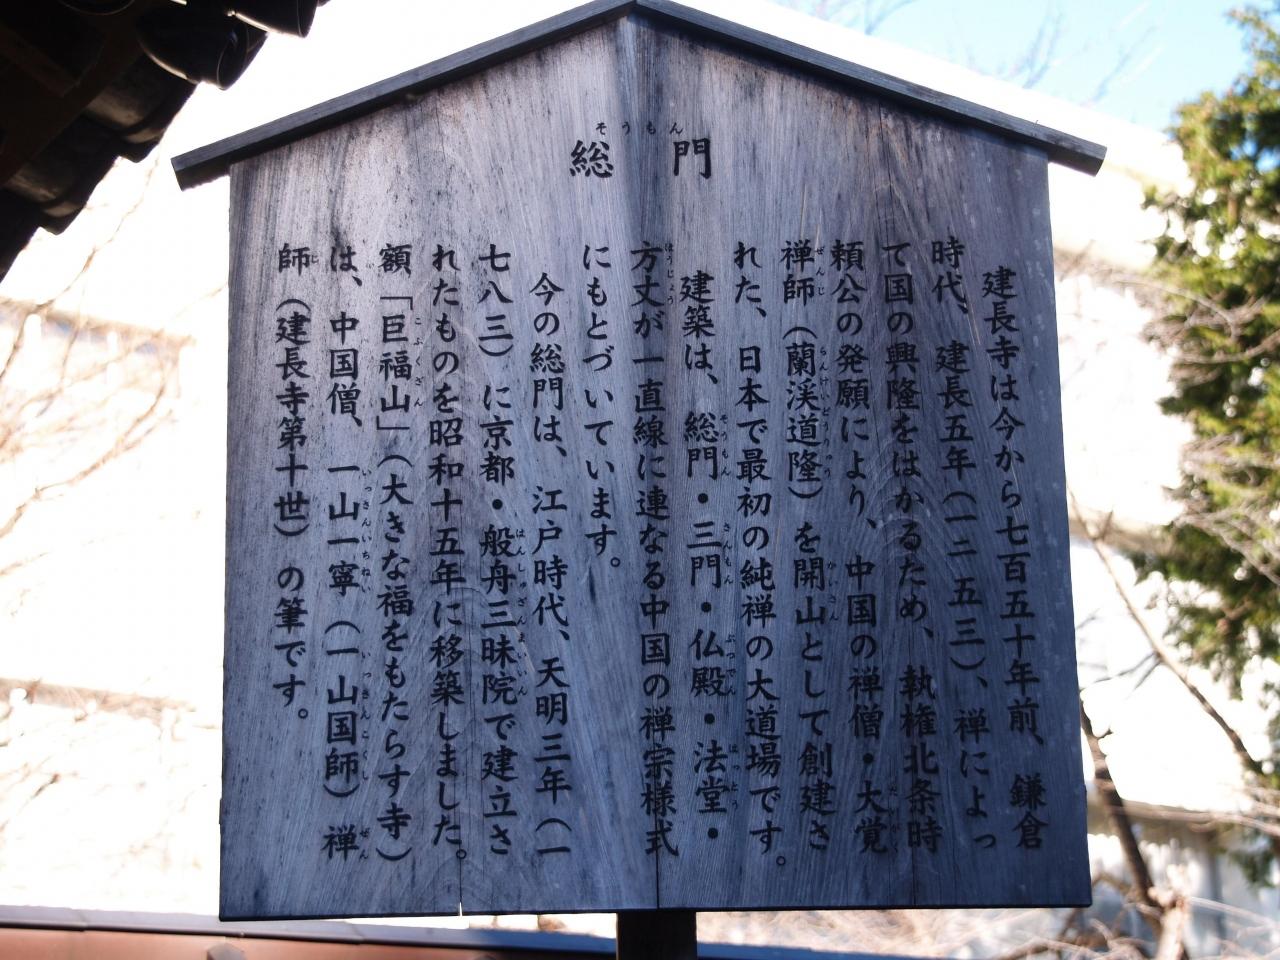 総門
建長寺は今から七百五十年前、鎌倉
時代、建長五年（一二五三）、禅によっ
て国の興隆をはかるため、執権北条時
頼公の発願により、中国の禅僧・大覚
禅師（蘭渓道隆）を開山として創建さ
れた、日本で最初の純禅の大道場です。
建築は、総門・三門・仏殿・法堂・
方丈が一直線に連なる中国の禅宗様式
にもとづいています。
今の総門は、江戸時代、天明三年（一
七八三）に京都・般舟三昧院で建立さ
れたものを昭和十五年に移築しました。
額「巨福山」（大きな福をもたらす寺）
は、中国僧、一山一寧（一山国師）禅
師（建長寺第十世）の筆です。